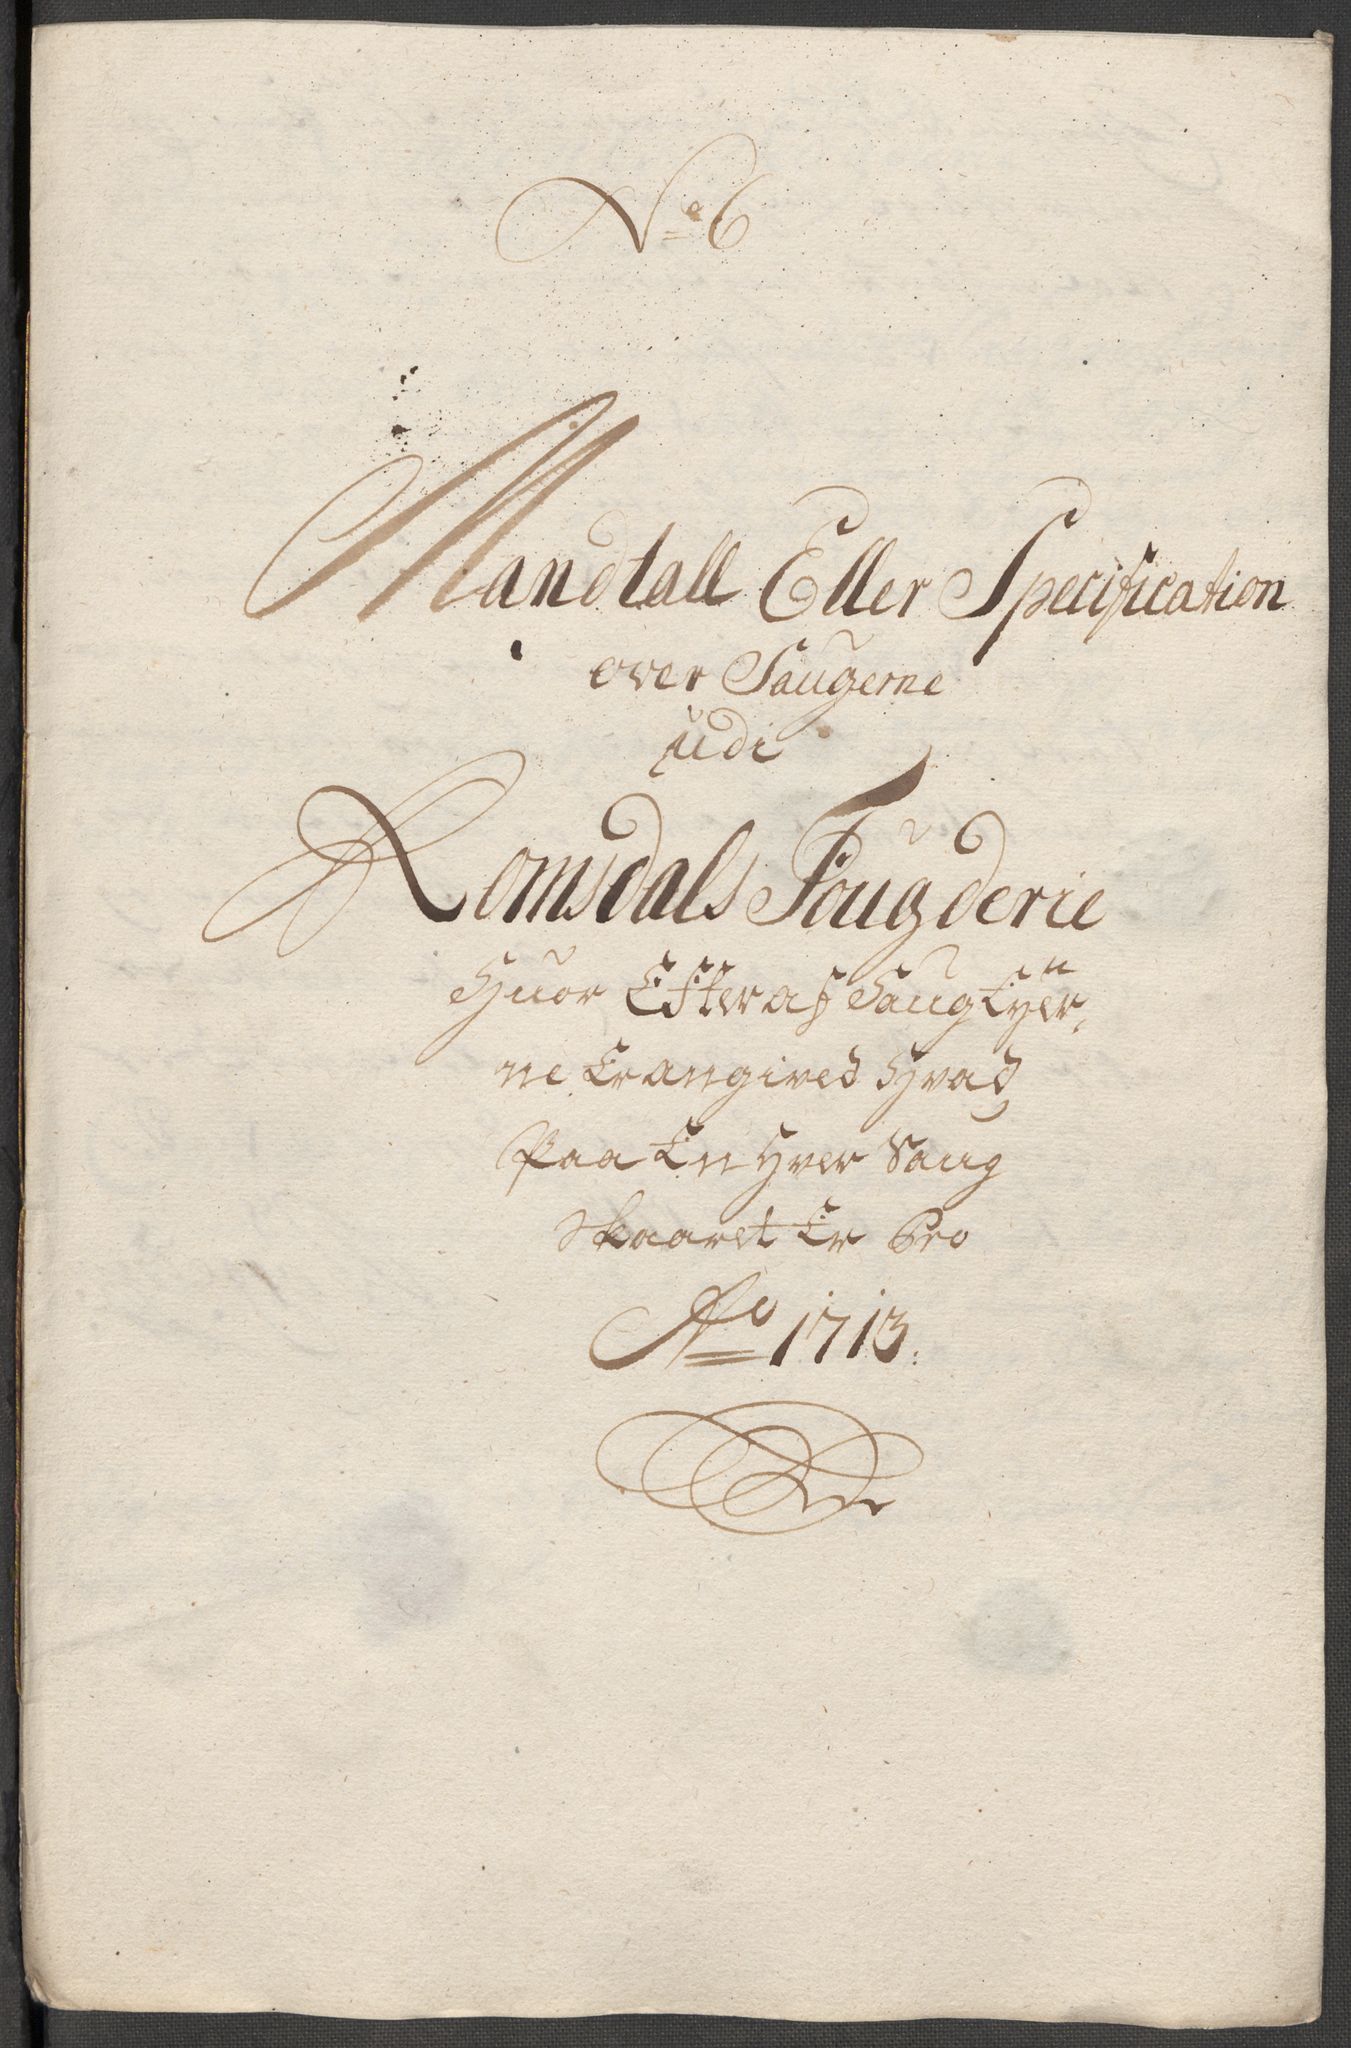 No 6
Mandtall Eller Specification
over Saugerne
udi
Romsdals Fougderie
Huor Efter af Saug Eÿer,
ne Er angived Hvad
Paa En Hver Saug
Skaaret Er Pro
Ao 1713.